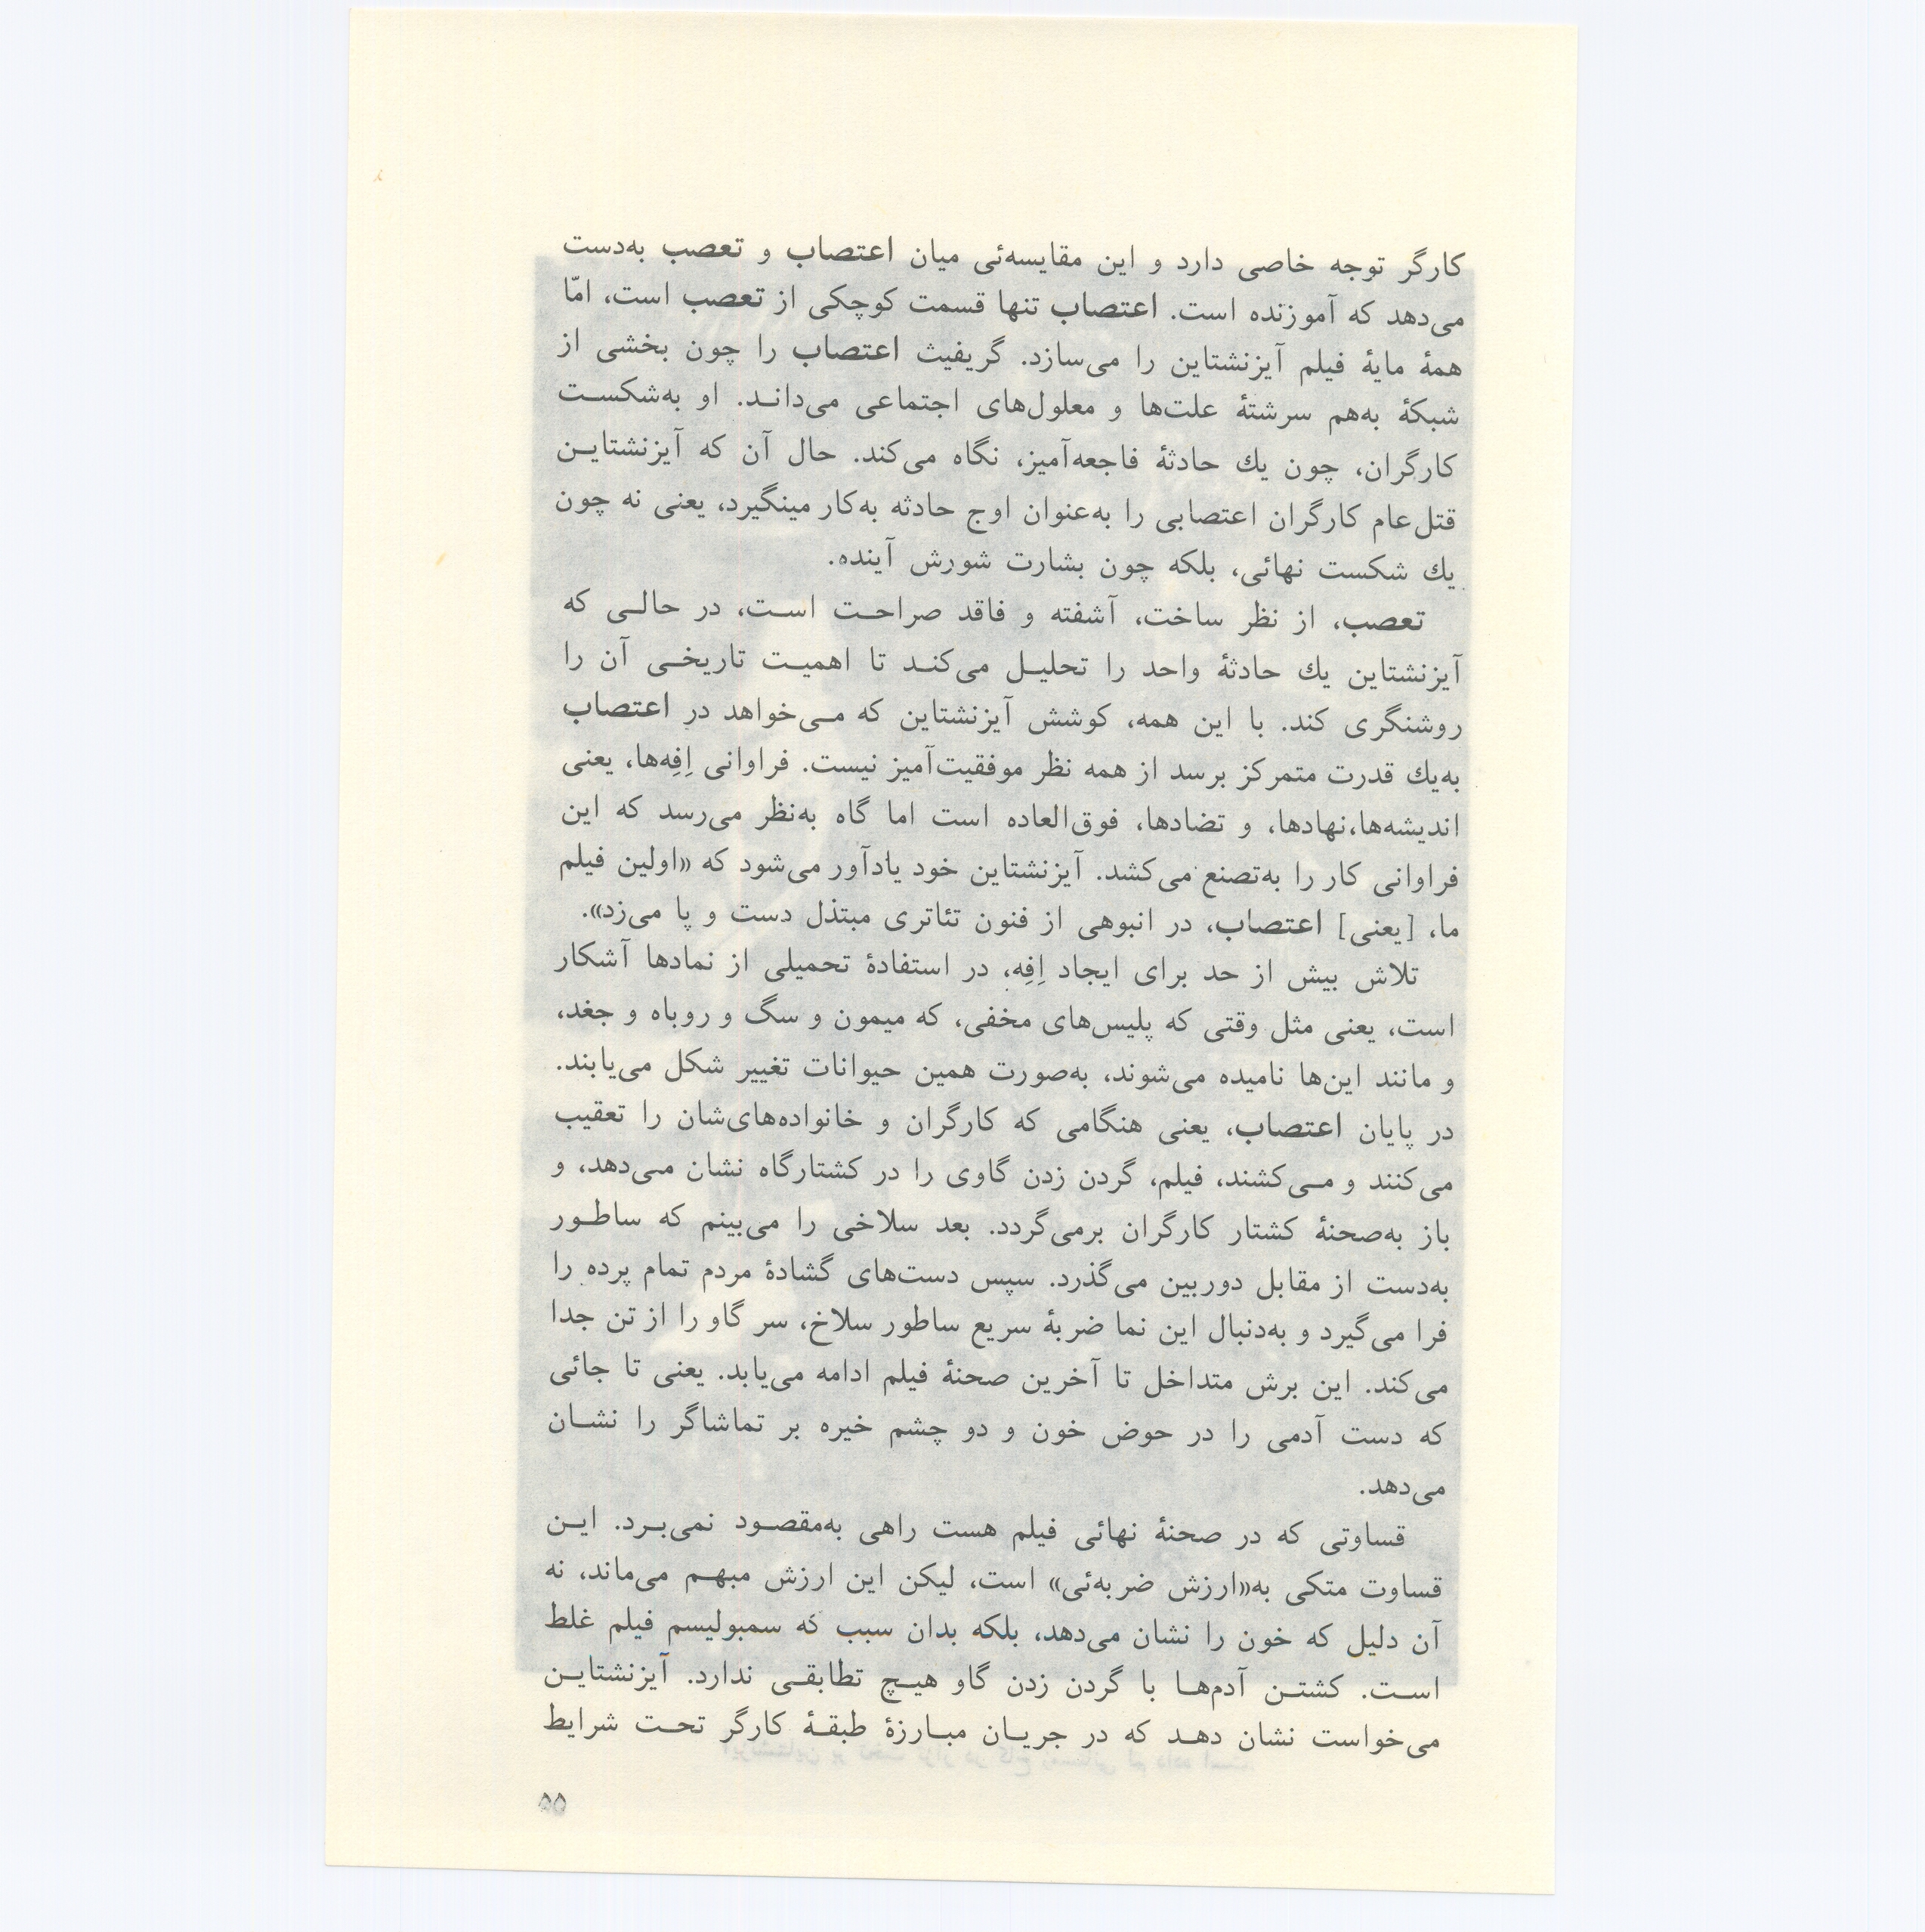 کارگر توجه خاصی دارد و این مقایسه‌ئی میان اعتصاب و تعصب به‌دست
می‌دهد که آموزنده است. اعتصاب تنها قسمت کوچکی از تعصب است، امّا
همهٔ مایهٔ فیلم آیزنشتاین را می‌سازد. گریفیث اعتصاب را چون بخشی از
شبکهٔ به‌هم سرشتهٔ علت‌ها و معلول‌های اجتماعی می‌دانـد. او به‌شکسـت
کارگران، چون یك حادثهٔ فاجعه‌آمیز، نگاه می‌کند. حال آن که آیزنشتایـن
قتل‌عام کارگران اعتصابی را به‌عنوان اوج حادثه به‌کار مینگیرد، یعنی نه چون
یك شکست نهائی، بلکه چون بشارت شورش آینده.
تعصب، از نظر ساخت، آشفته و فاقد صراحـت اسـت، در حالـی که
آیزنشتاین یك حادثهٔ واحد را تحلیـل می‌کنـد تا اهمیـت تاریخـی آن را
روشنگری کند. با این همه، کوشش آیزنشتاین که مـی‌خواهد در اعتصاب
به‌یك قدرت متمرکز برسد از همه نظر موفقیت‌آمیز نیست. فراوانی اِفِه‌ها، یعنی
اندیشه‌ها،نهادها، و تضادها، فوق‌العاده است اما گاه به‌نظر می‌رسد که این
فراوانی کار را به‌تصنع می‌کشد. آیزنشتاین خود یادآور می‌شود که «اولین فیلم
ما، [یعنی] اعتصاب، در انبوهی از فنون تئاتری مبتذل دست و پا می‌زد».
تلاش بیش از حد برای ایجاد اِفِه، در استفادهٔ تحمیلی از نمادها آشکار
است، یعنی مثل وقتی که پلیس‌های مخفی، که میمون و سگ و روباه و جغد،
و مانند این‌ها نامیده می‌شوند، به‌صورت همین حیوانات تغییر شکل می‌یابند.
در پایان اعتصاب، یعنی هنگامی که کارگران و خانواده‌های‌شان را تعقیب
می‌کنند و مـی‌کشند، فیلم، گردن زدن گاوی را در کشتارگاه نشان مـی‌دهد، و
باز به‌صحنهٔ کشتار کارگران برمی‌گردد. بعد سلاخی را می‌بینم که ساطـور
به‌دست از مقابل دوربین می‌گذرد. سپس دست‌های گشادهٔ مردم تمام پرده را
فرا می‌گیرد و به‌دنبال این نما ضربهٔ سریع ساطور سلاخ، سر گاو را از تن جدا
می‌کند. این برش متداخل تا آخرین صحنهٔ فیلم ادامه می‌یابد. یعنی تا جائی
که دست آدمی را در حوض خون و دو چشم خیره بر تماشاگر را نشـان
می‌دهد.
قساوتی که در صحنهٔ نهائی فیلم هست راهی به‌مقصـود نمی‌بـرد. ایـن
قساوت متکی به«ارزش ضربه‌ئی» است، لیکن این ارزش مبهـم می‌ماند، نه
آن دلیل که خون را نشان می‌دهد، بلکه بدان سبب که سمبولیسم فیلم غلط
اسـت. کشتـن آدم‌هـا با گردن زدن گاو هیـچ تطابقـی ندارد. آیزنشتایـن
می‌خواست نشان دهـد که در جریـان مبـارزهٔ طبقـهٔ کارگر تحـت شرایط
۵۵